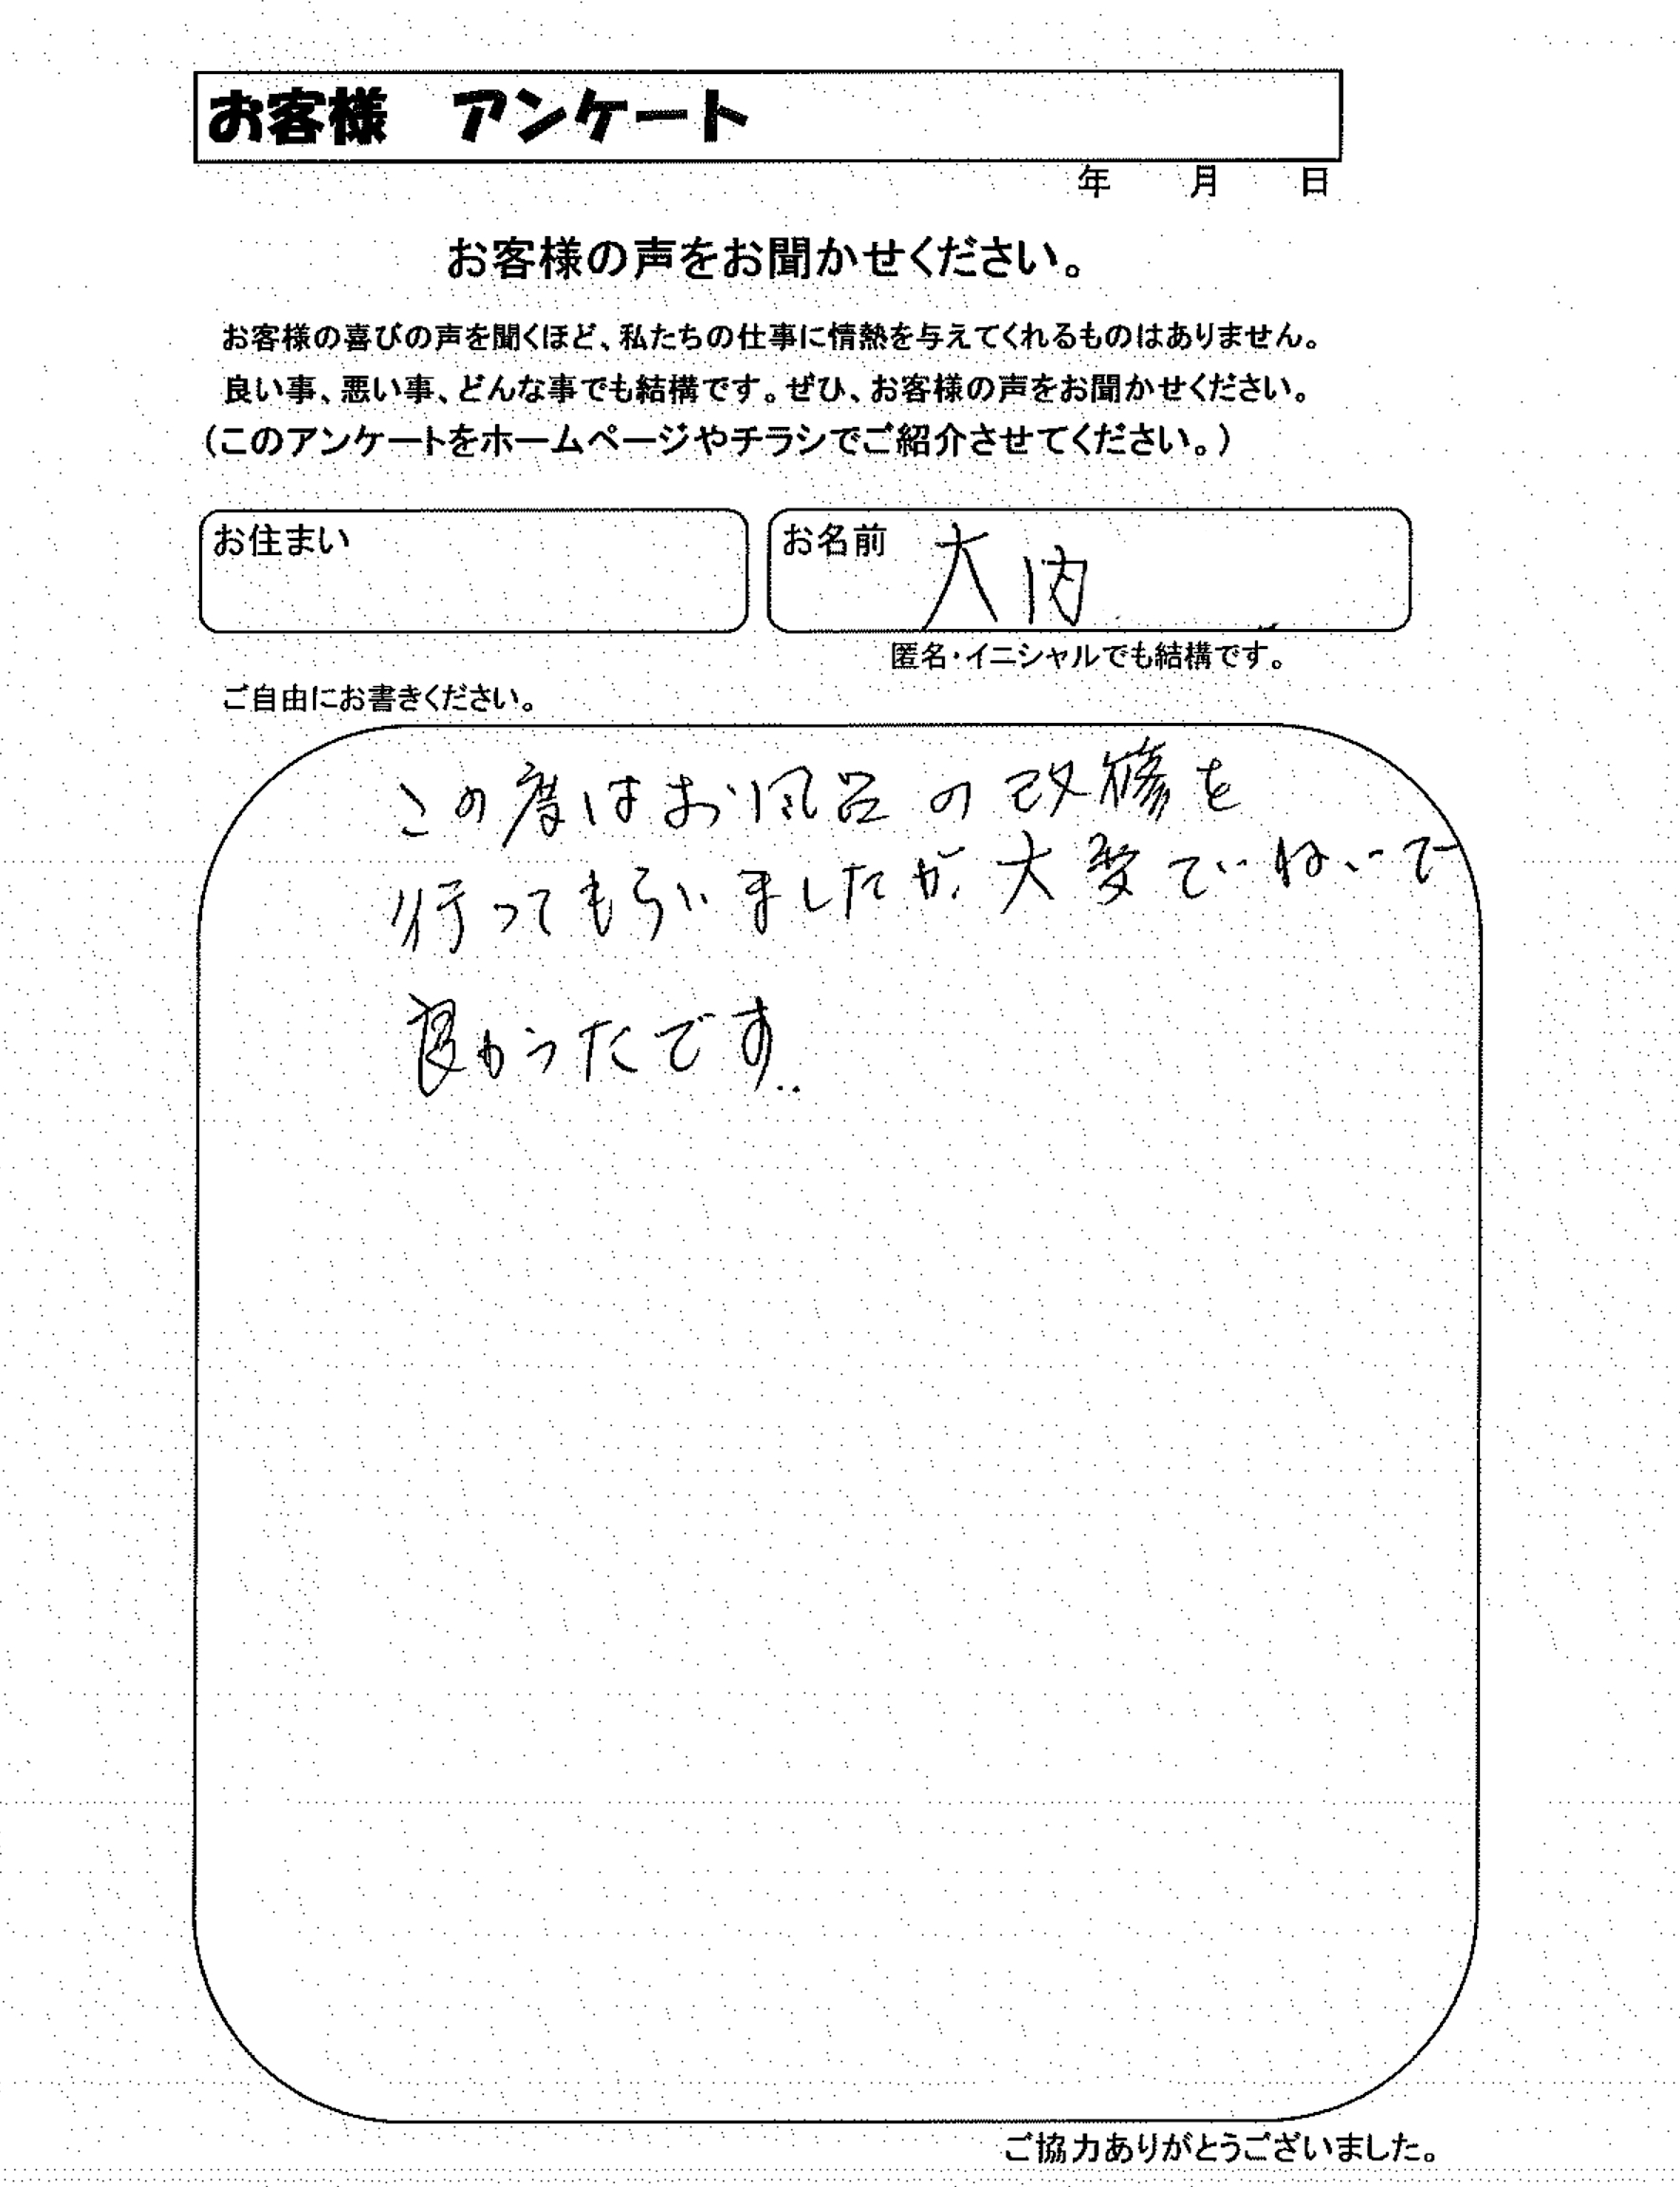 お客様 アンケート
年 月 日
お客様の声をお聞かせください。
お客様の喜びの声を聞くほど、私たちの仕事に情熱を与えてくれるものはありません。
良い事、悪い事、どんな事でも結構です。ぜひ、お客様の声をお聞かせください。
(このアンケートをホームページやチラシでご紹介させてください。)
お住まい
お名前 大内
匿名・イニシャルでも結構です。
ご自由にお書きください。
この度はお風呂の改修を
行ってもらいましたが、大変ていねいで
良かったです。
ご協力ありがとうございました。